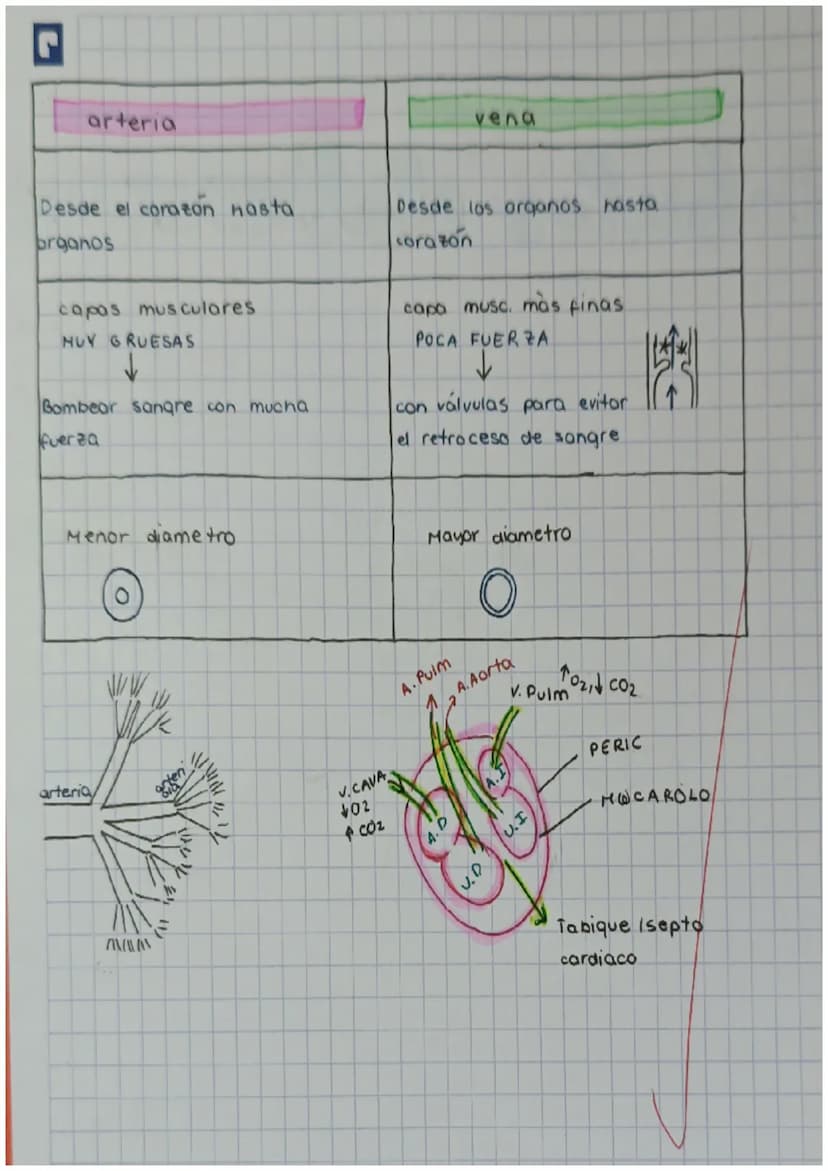 arteria
vena
Desde el corazón hasta
organos
Desde los organos hasta
corazón
capas musculares
MUY GRUESAS
Bombear sangre con mucha
fuerza
capa musc. màs finas
POCA FUERZA
con válvulas para evitar
el retroceso de sangre
Menor diametro
Mayor diametro
arteria
A. Pulm
A. Aorta
V. Pulm ↑O2, ↓ CO2
V. CAVA
↓O2
↑ CO2
A.D
A.I
V.I
V.D
PERIC
Tabique /septo
cardiaco